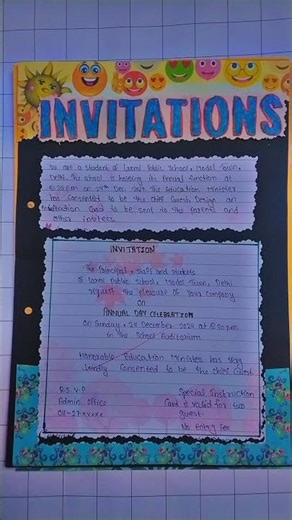 INVITATIONS
You are a student of Laxmi Public School, Model Town,
Delhi. The school is holding its Annual function at
6:30 pm on 28th Dec, The Education Minister
has consented to be the chief Guest. Design an
invitation Card to be sent to the Parents and
other invitees.
INVITATION
The Principal, staff and students
of Laxmi Public School, Model Town, Delhi
request the pleasure of your company
on
ANNUAL DAY CELEBRATION
On Sunday, 28 December 2024 at 6:30 pm
in the School Auditorium
Honorable Education Minister has very
kindly consented to be the chief Guest
R.S.V.P
Admin. Office
011-27xxxxx
Special Instruction
Card is valid for two
Guest
No Entry fee